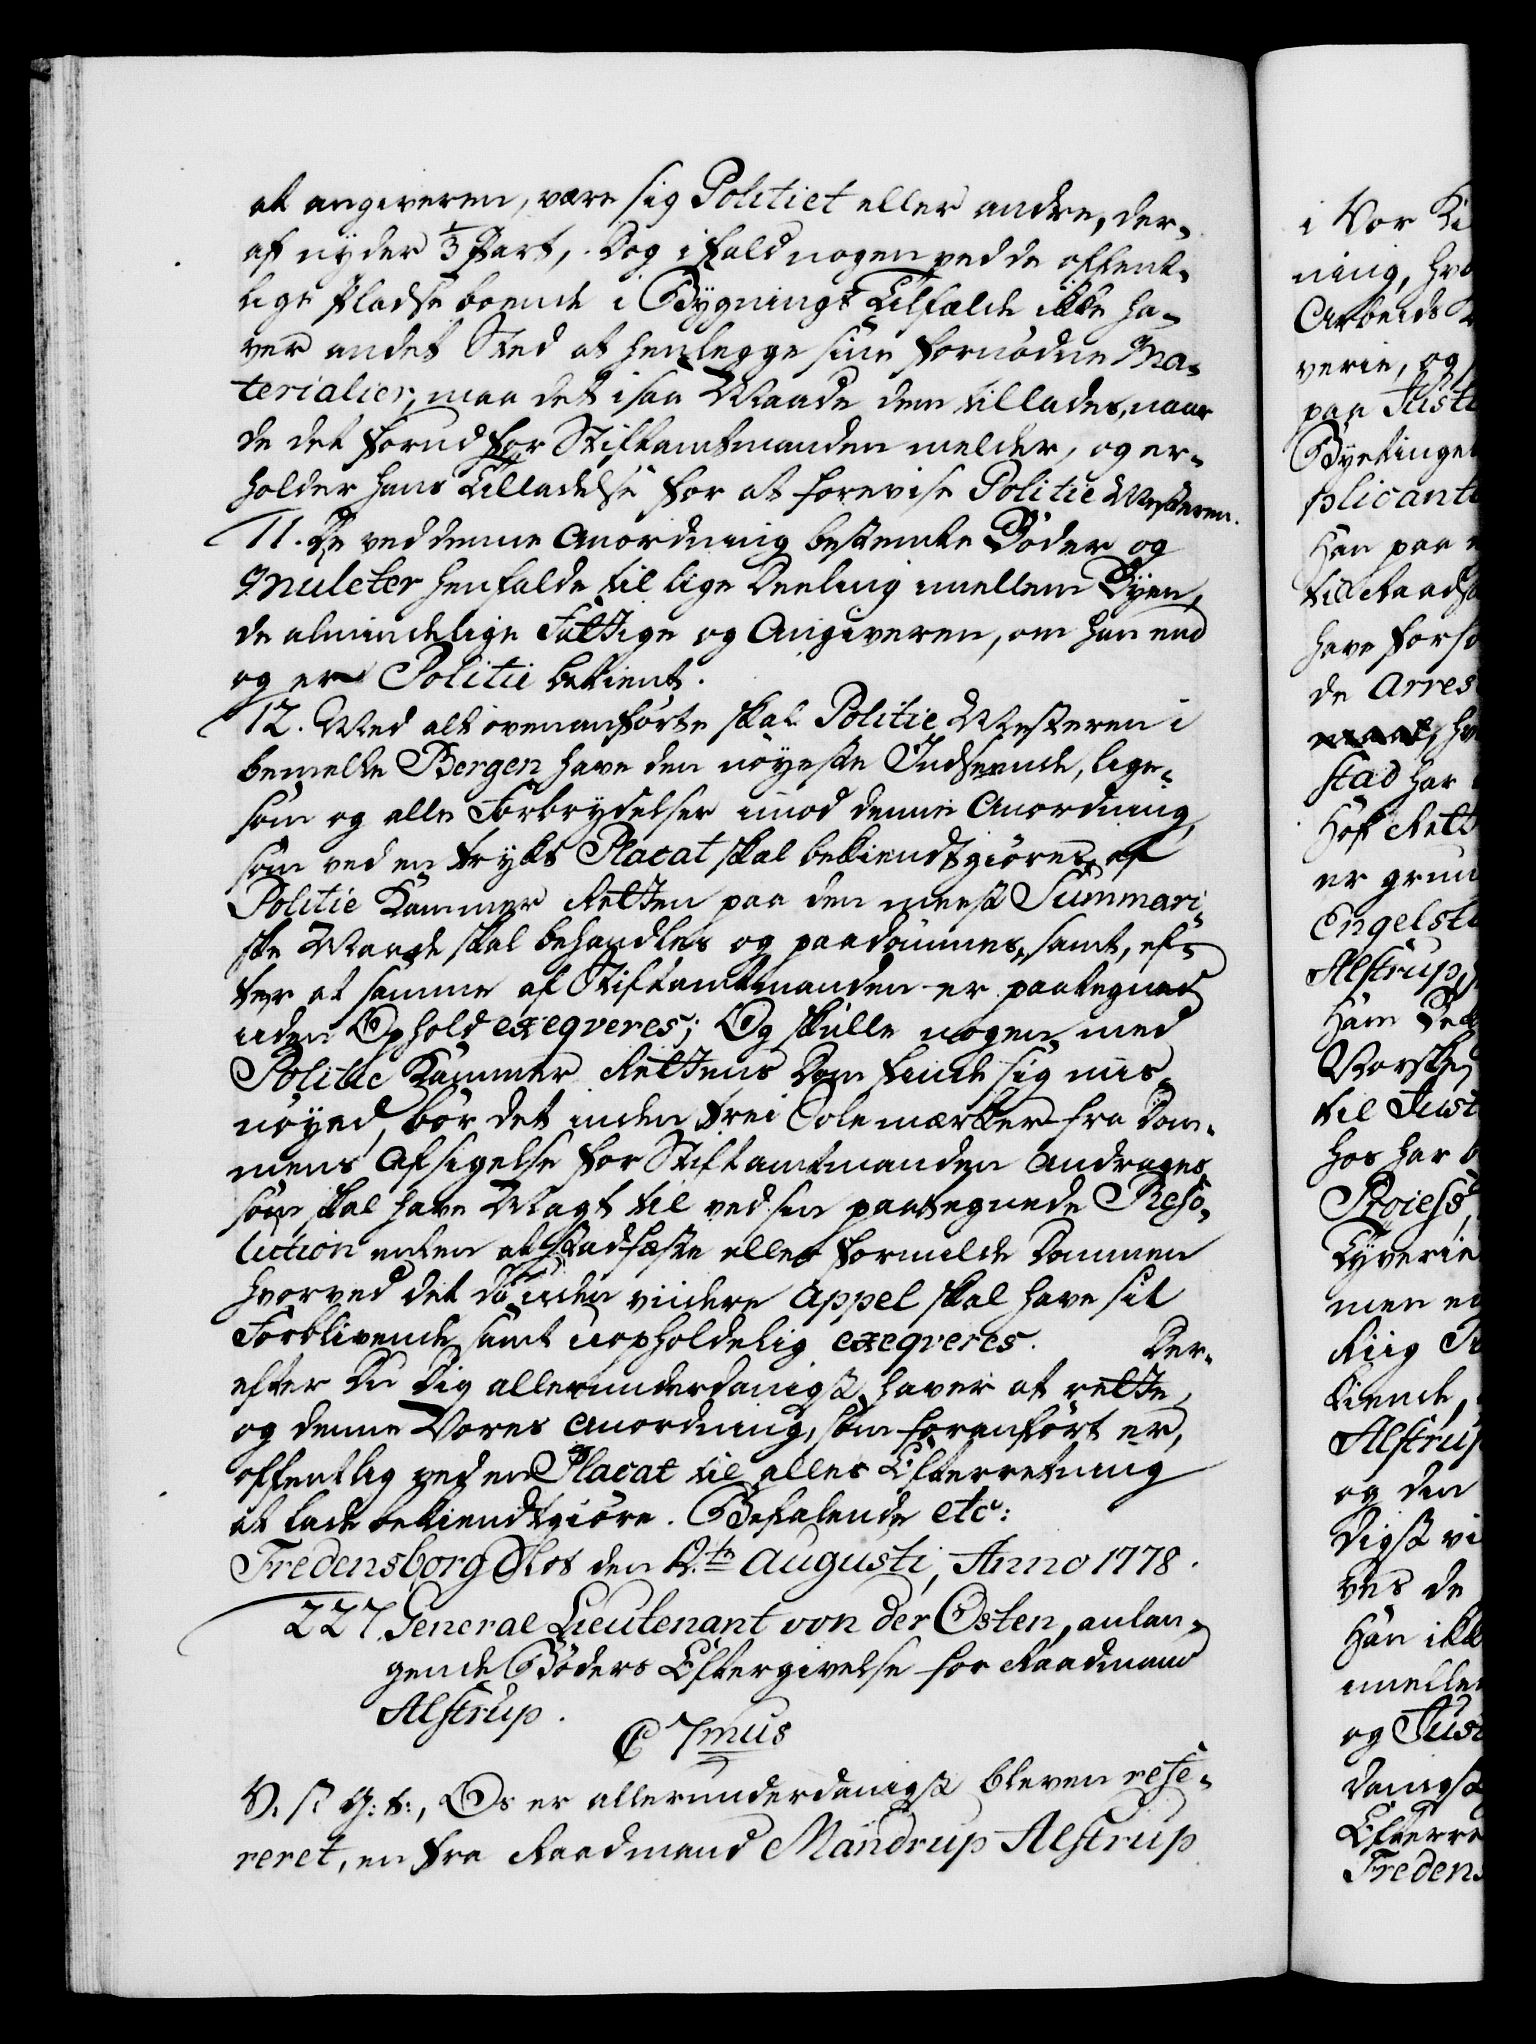 at angiveren, være sig Politiet eller andre, der-
af nyder 1/3 Part, Dog ifald nogen ved de offent-
lige Pladse boende i Bygnings Tilfælde ikke ha-
ver andet Sted at henlegge sine fornødne Ma-
terialier, maa det i saa Maade dem tillades, naar
de det forud for Stiftamtmanden melder, og er-
holder hans Tilladelse for at forevise Politie Mesteren.
11. De ved denne Anordning bestemte Bøder og
Mulcter henfalde til lige Deeling imellem Byen,
de almindelige Fattige og Angiveren, om han end
og er Politie betient.
12. Med alt ovenanførte skal Politie Mesteren i
bemelte Bergen have den nøyeste Indseende, lige-
som og alle Forbrydelser imod denne Anordning,
som ved en trykt Placat skal bekiendtgiøres, af
Politie Kammer Retten paa den meest Summari-
ske Maade skal behandles og paadømmes, samt, ef-
ter at samme af Stiftamtmanden er paategnet
uden Ophold exeqveres; Og skulle nogen med
Politie Kammer Rettens Dom finde sig mis-
nøyed, bør det inden trei Solemærker fra Dom-
mens Afsigelse for Stiftamtmanden Andrages
som skal have Magt til ved sin paategnede Reso-
lution enten at stadfæste eller formilde Dommen
hvorved det da uden viidere Appel skal have sit
Forblivende samt uopholdelig exeqveres. Der-
efter Du Dig allerunderdanigst haver at rette,
og denne Vores Anordning, som foranført er,
offentlig ved en Placat til alles Efterretning
at lade bekiendtgiøre. Befalende etc:
Fredensborg Slot den Augusti, Anno 1778.
227. General Lieutenant von der Osten, anlan-
gende Bøders Eftergivelse for Raadmand
Alstrup.
C 7mus
V. s. G: t:, Os er allerunderdanigst bleven refe-
reret, en fra Raadmand Mandrup Alstrup
i Vor
ning,
Arbeids
verie, og
paa Justi
Byetinget
plicant
Han paa
til Raads
have forso
de Arres
stad har
Hof Rett
er grun
Engelst
Alstrup,
Ham
Norske
til Just
hos har
Tyverie
men
kiende,
Alstrup
og den
digst vi
ves de
Han ikk
imellem
og Just
danigst
Efterre
Fredens